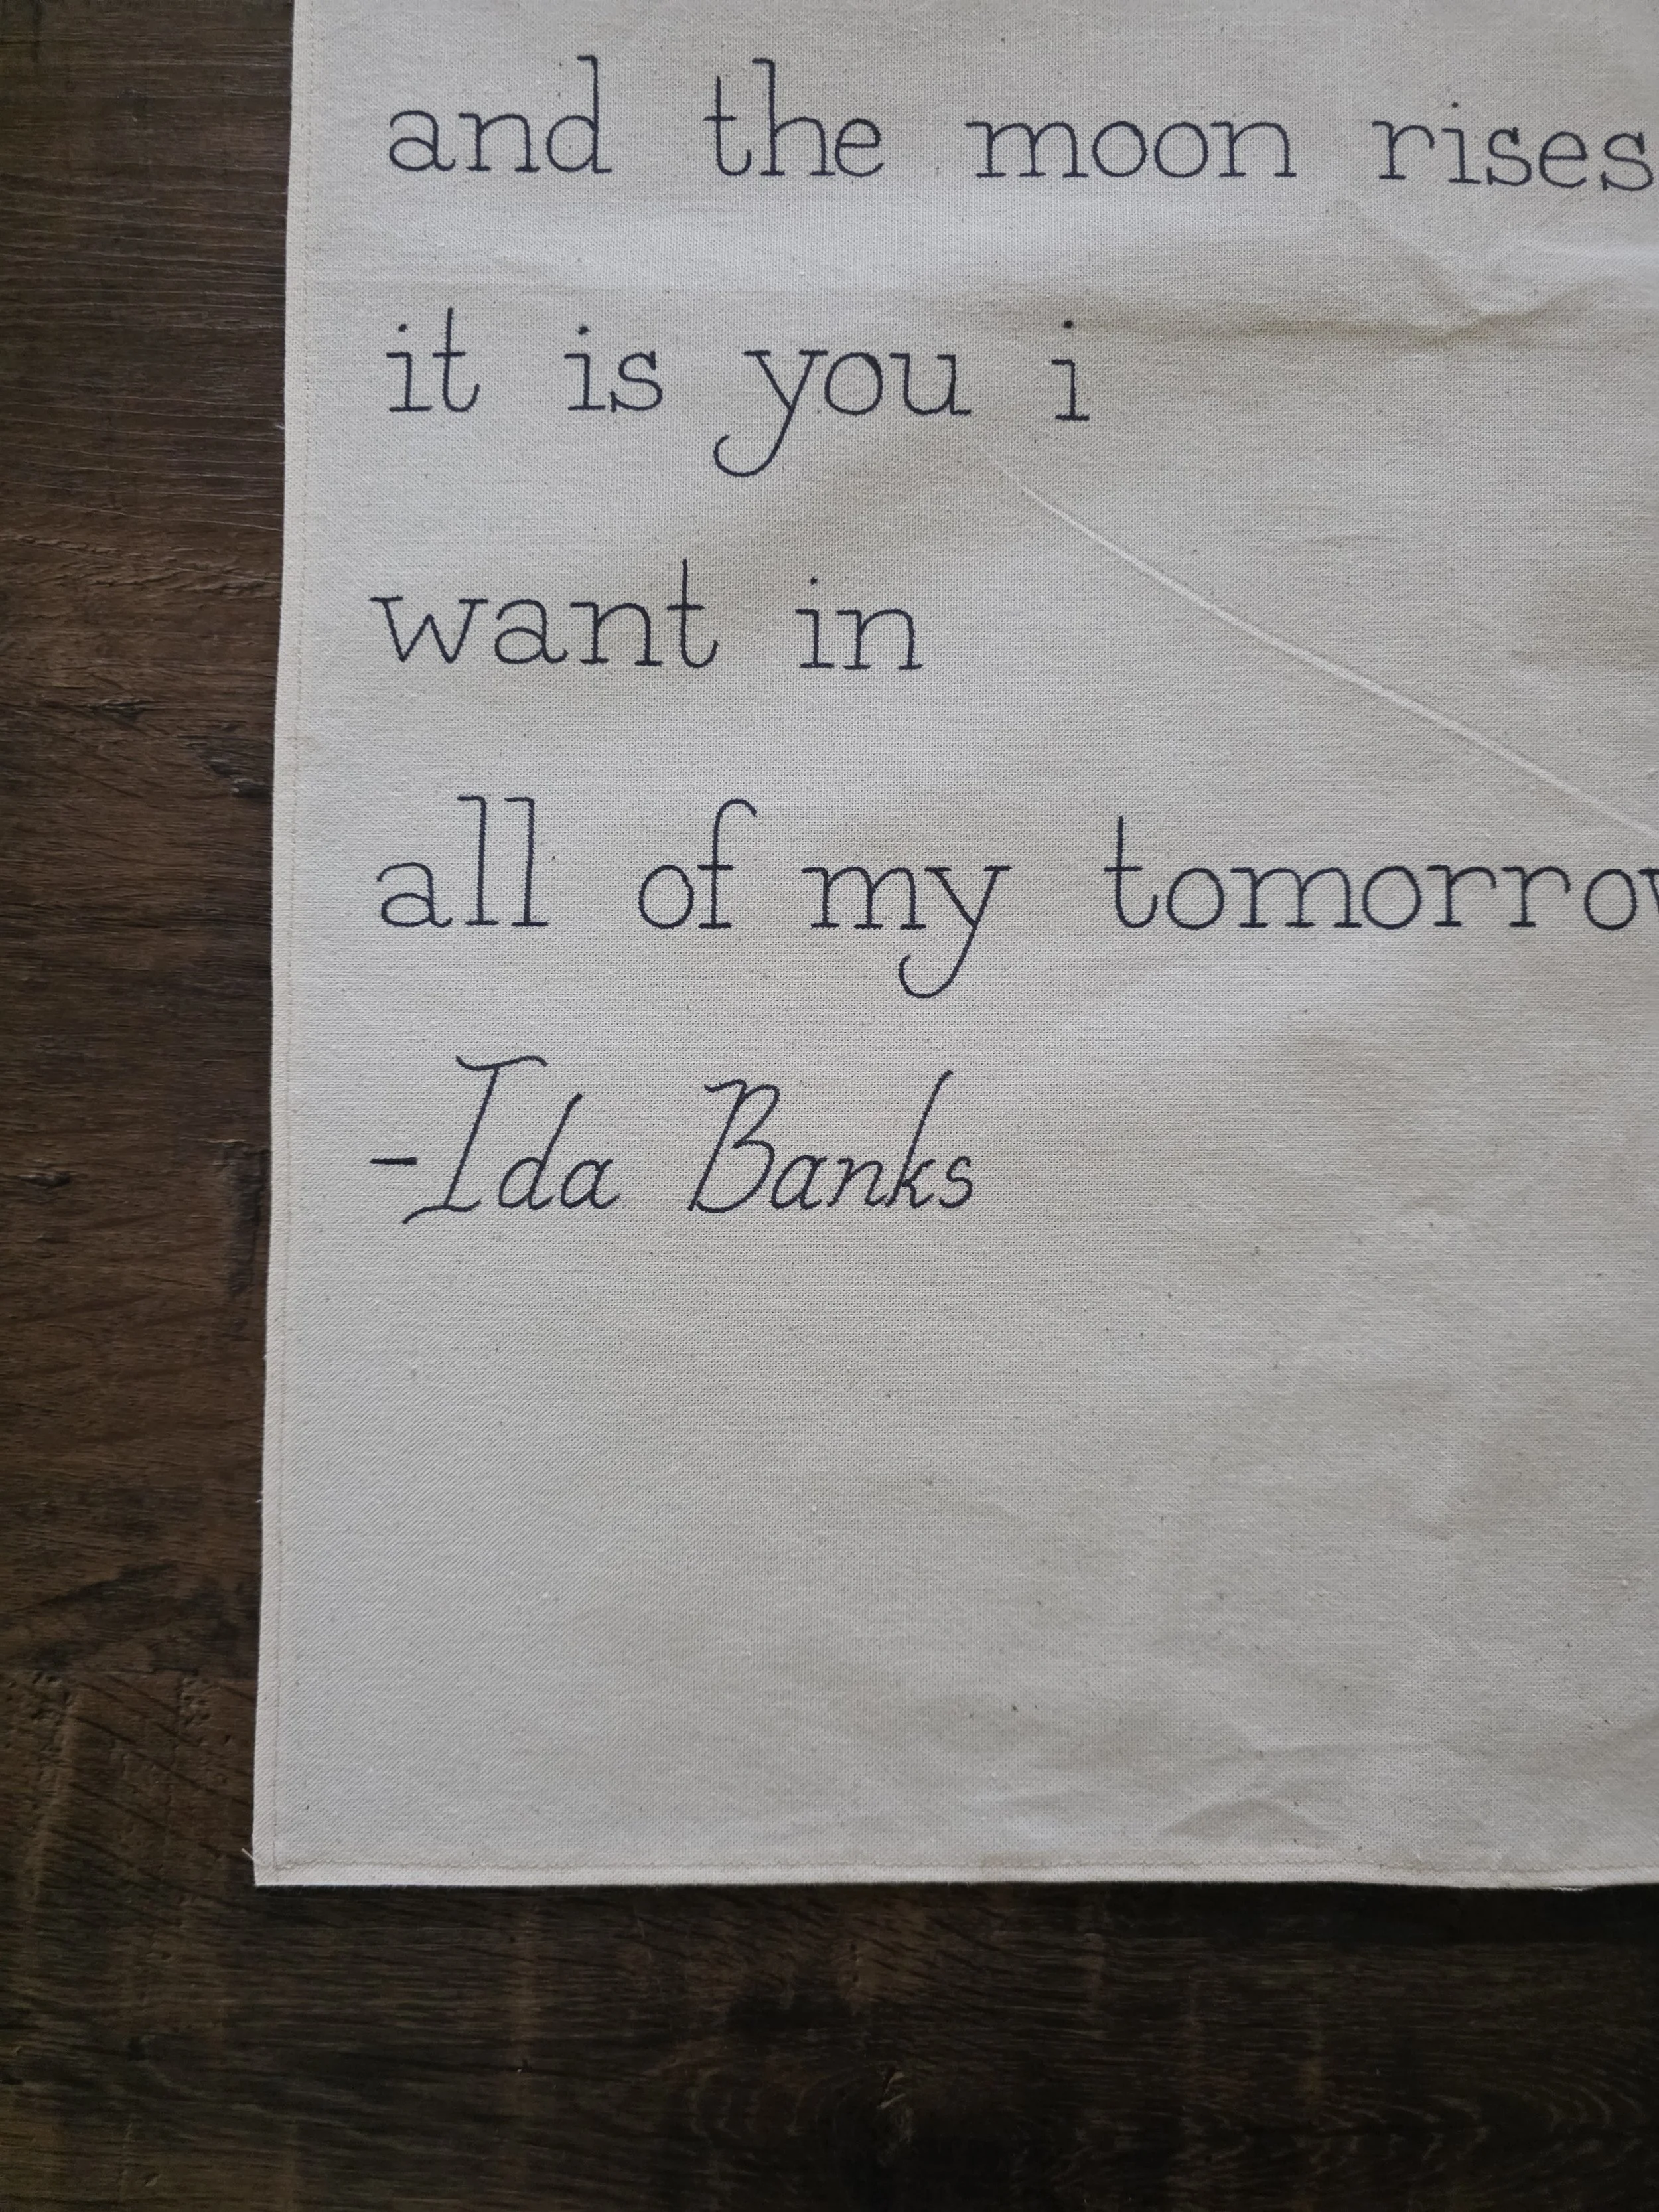 and the moon rises
it is you i
want in
all of my tomorrow
-Ida Banks